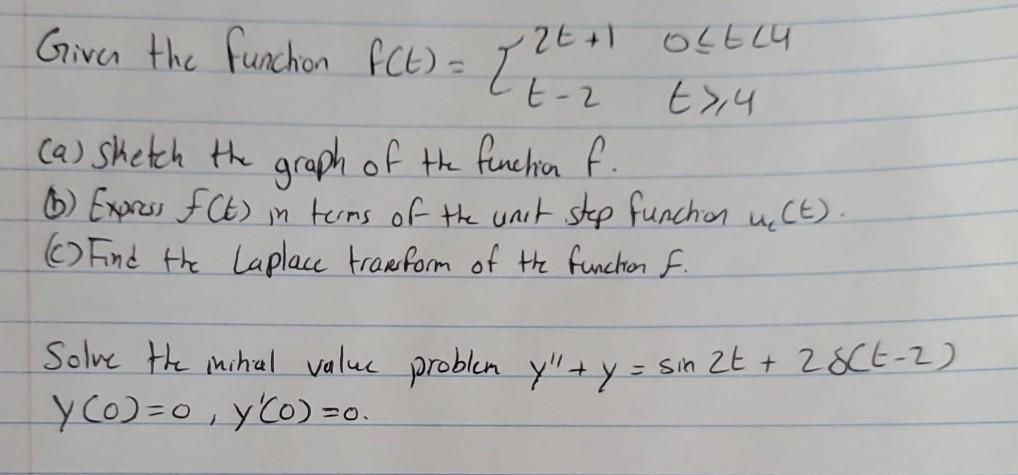 Given the function f(t) = { 2t+1 0≤t<4
t-2 t≥4
(a) Sketch the graph of the function f.
(b) Express f(t) in terms of the unit step function u_c(t).
(c) Find the Laplace transform of the function f.
Solve the initial value problem y'' + y = sin 2t + 2δ(t-2)
y(0)=0, y'(0)=0.